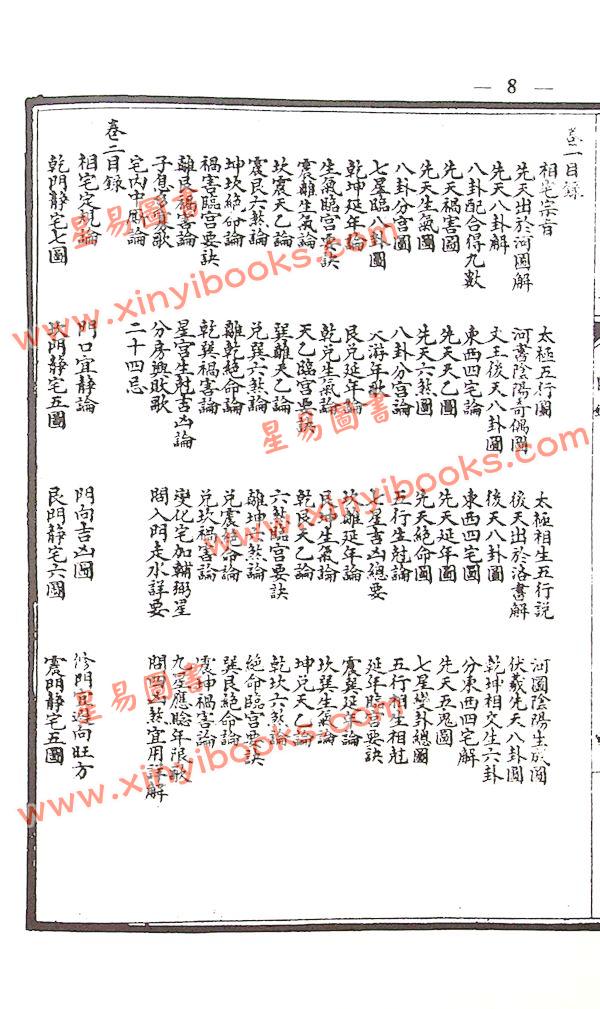 — 8 —
卷一目錄
相宅宗旨 太極五行圖 太極相生五行説 河圖陰陽生成圖
先天出於河圖解 河書陰陽奇偶圖 後天出於洛書解 伏羲先天八卦圖
先天八卦解 文王後天八卦圖 後天八卦圖 乾坤相交生六卦
八卦配合得九數 東西四宅論 東西四宅圖 分東西四宅解
先天禍害圖 先天天乙圖 先天延年圖 先天五鬼圖
先天生氣圖 先天六煞圖 先天絶命圖 七星變卦總圖
八卦分宫圖 八卦分宫論 五行生尅論 五行相生相尅
七星臨八卦圖 大游年歌 七星吉凶總要 延年臨宫要訣
乾坤延年論 艮兑延年論 坎離延年論 震巽延年論
生氣臨宫要訣 乾兑生氣論 艮坤生氣論 坎巽生氣論
震離生氣論 天乙臨宫要訣 乾艮天乙論 坤兑天乙論
坎震天乙論 巽離天乙論 六煞臨宫要訣 乾坎六煞論
震艮六煞論 兑巽六煞論 離坤六煞論 絶命臨宫要訣
坤坎絶命論 離乾絶命論 兑震絶命論 巽艮絶命論
禍害臨宫要訣 乾巽禍害論 兑坎禍害論 震坤禍害論
離艮禍害論 星宫生尅吉凶論 變化宅加輔弼星 九星應驗年限歌
子息多寡歌 分房興敗歌 開入門走水詳要 開四凶煞宜用詳解
宅内中厨論 二十四忌
卷二目錄
相宅定論 門口宜静論 門向吉凶圖 修門宜向旺方
乾門静宅七圖 坎門静宅五圖 艮門静宅六圖 震門静宅五圖
星易圖書
www.xinyibooks.com
星易圖書
www.xinyibooks.com
星易圖書
www.xinyibooks.com